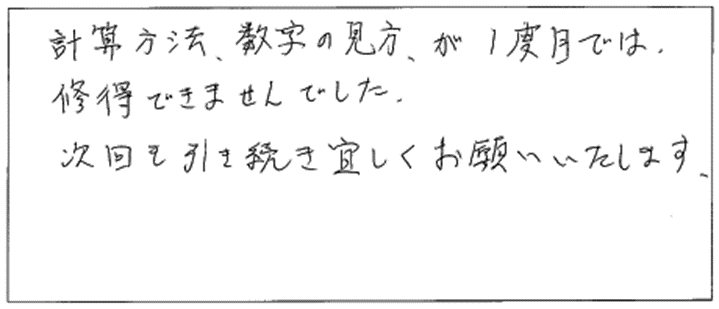 計算方法、数字の見方、が1度目では、
修得できませんでした。
次回も引き続き宜しくお願いいたします、